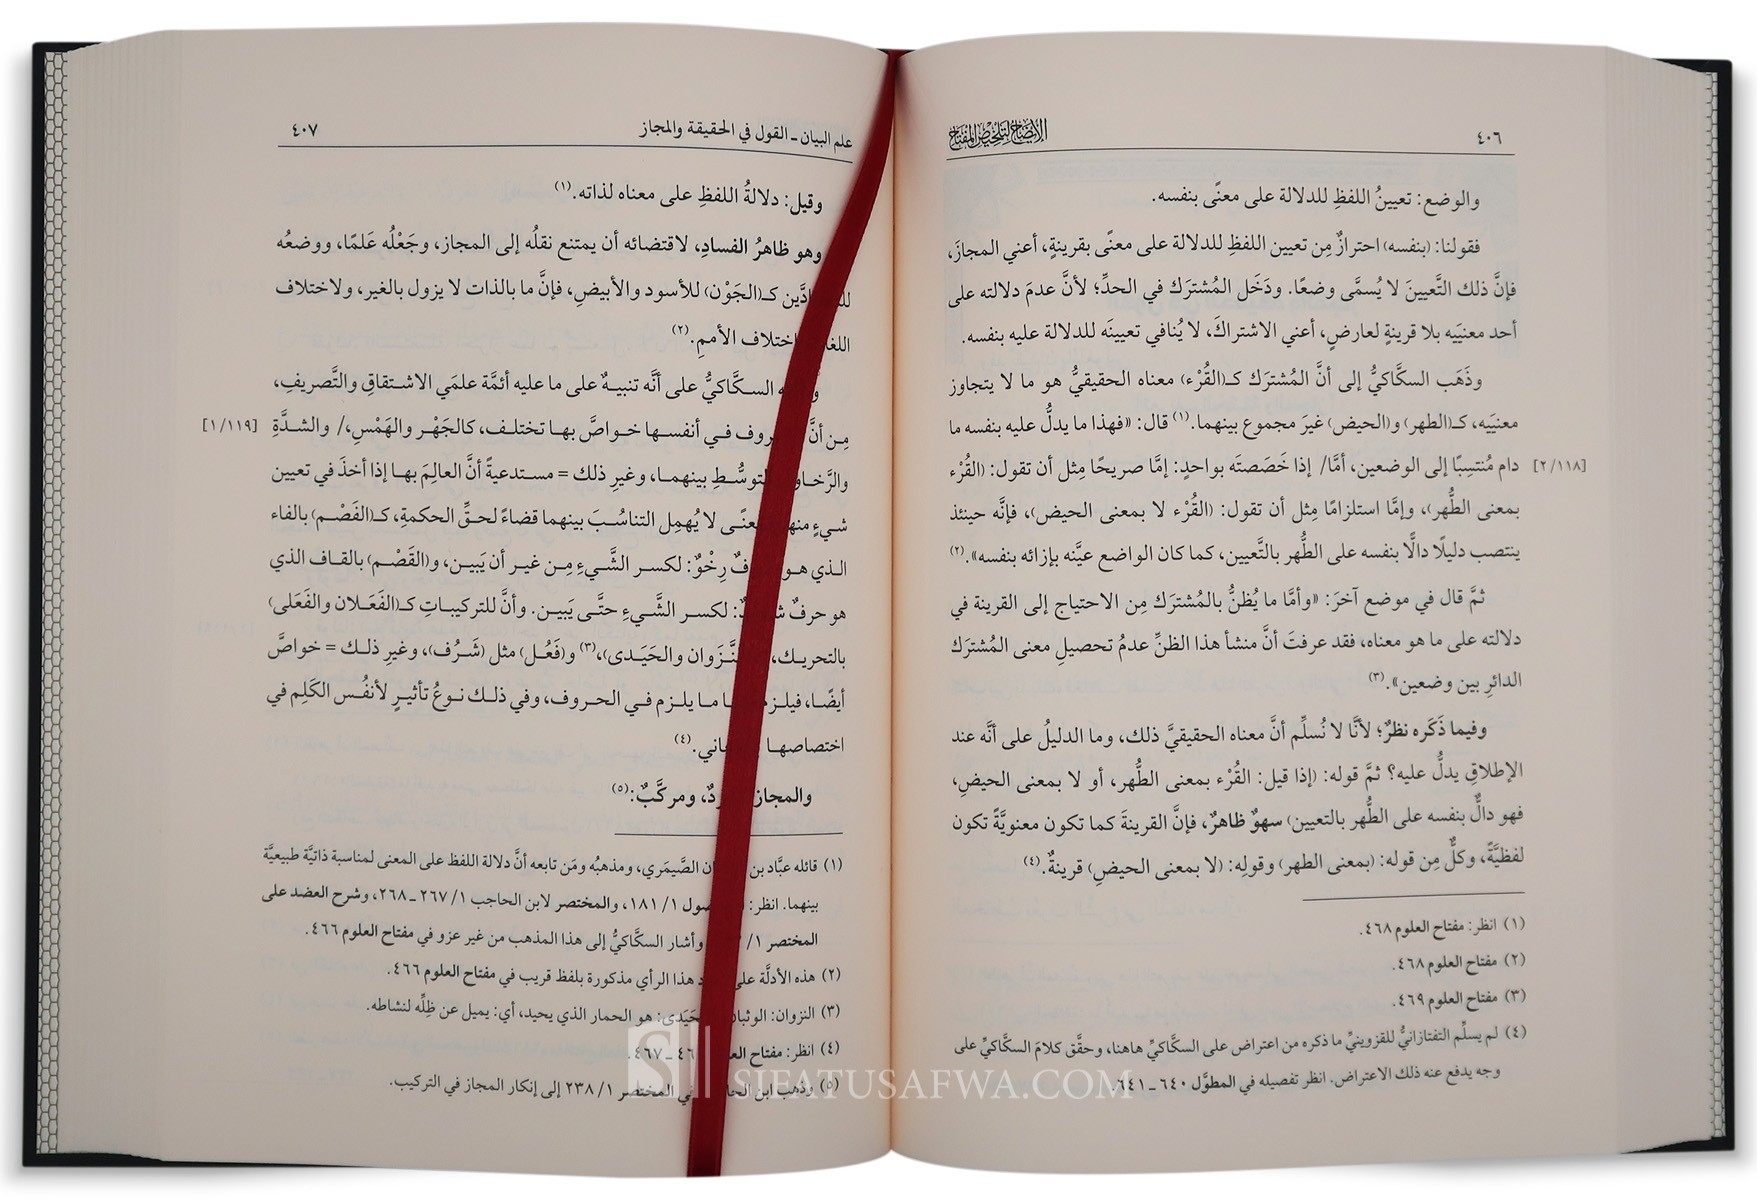 ٤٠٦
الإيضاح لتلخيص المفتاح
والوضع: تعيينُ اللفظِ للدلالة على معنًى بنفسه.
فقولنا: (بنفسه) احترازٌ مِن تعيين اللفظِ للدلالة على معنًى بقرينةٍ، أعني المجازَ،
فإنَّ ذلك التَّعيينَ لا يُسمَّى وضعًا. ودَخَل المُشترَك في الحدِّ؛ لأنَّ عدمَ دلالته على
أحد معنيَيه بلا قرينةٍ لعارضٍ، أعني الاشتراكَ، لا يُنافي تعيينَه للدلالة عليه بنفسه.
وذَهَب السكَّاكيُّ إلى أنَّ المُشترَك كـ(القُرْء) معناه الحقيقيُّ هو ما لا يتجاوز
معنيَيه، كـ(الطهر) و(الحيض) غيرَ مجموع بينهما.(١) قال: «فهذا ما يدلُّ عليه بنفسه ما
[٢/١١٨] دام مُنتسِبًا إلى الوضعين، أمَّا/ إذا خَصَصتَه بواحدٍ: إمَّا صريحًا مِثل أن تقول: (القُرْء
بمعنى الطُّهر)، وإمَّا استلزامًا مِثل أن تقول: (القُرْء لا بمعنى الحيض)، فإنَّه حينئذ
ينتصب دليلًا دالًّا بنفسه على الطُّهر بالتَّعيين، كما كان الواضع عيَّنه بإزائه بنفسه».(٢)
ثمَّ قال في موضع آخرَ: «وأمَّا ما يُظنُّ بالمُشترَك مِن الاحتياج إلى القرينة في
دلالته على ما هو معناه، فقد عرفتَ أنَّ منشأ هذا الظنِّ عدمُ تحصيلِ معنى المُشترَك
الدائرِ بين وضعين».(٣)
وفيما ذَكَره نظرٌ؛ لأنَّا لا نُسلِّم أنَّ معناه الحقيقيَّ ذلك، وما الدليلُ على أنَّه عند
الإطلاقِ يدلُّ عليه؟ ثمَّ قوله: (إذا قيل: القُرْء بمعنى الطُّهر، أو لا بمعنى الحيض،
فهو دالٌّ بنفسه على الطُّهر بالتعيين) سهوٌ ظاهرٌ، فإنَّ القرينةَ كما تكون معنويَّةً تكون
لفظيَّةً، وكلٌّ مِن قوله: (بمعنى الطهر) وقولِه: (لا بمعنى الحيضِ) قرينةٌ.(٤)
(١) انظر: مفتاح العلوم ٤٦٨.
(٢) مفتاح العلوم ٤٦٨.
(٣) مفتاح العلوم ٤٦٩.
(٤) لم يسلِّم التفتازانيُّ للقزوينيِّ ما ذكره من اعتراض على السكَّاكيِّ هاهنا، وحقَّق كلامَ السكَّاكيِّ على
وجه يدفع عنه ذلك الاعتراض. انظر تفصيله في المطوَّل ٦٤٠ـ٦٤١.
علم البيان ـ القول في الحقيقة والمجاز
٤٠٧
وقيل: دلالةُ اللفظِ على معناه لذاته.(١)
وهو ظاهرُ الفسادِ، لاقتضائه أن يمتنع نقلُه إلى المجاز، وجَعْلُه عَلمًا، ووضعُه
كـ(الجَوْن) للأسود والأبيضِ، فإنَّ ما بالذات لا يزول بالغير، ولاختلاف
اختلاف الأممِ.(٢)
السكَّاكيُّ على أنَّه تنبيهٌ على ما عليه أئمَّة علمَي الاشتقاقِ والتَّصريفِ،
مِن أنَّ في أنفسها خواصَّ بها تختلف، كالجَهْر والهَمْسِ،/ والشدَّةِ [١/١١٩]
والتوسُّطِ بينهما، وغيرِ ذلك = مستدعيةً أنَّ العالِمَ بها إذا أخذَ في تعيين
شيءٍ لا يُهمِل التناسُبَ بينهما قضاءً لحقِّ الحكمةِ، كـ(الفَصْم) بالفاء
الذي هو رِخْوٌ: لكسر الشَّيءِ مِن غير أن يَبين، و(القَصْم) بالقاف الذي
هو حرفٌ لكسر الشَّيءِ حتَّى يَبين. وأنَّ للتركيباتِ كـ(الفَعَلان والفَعَلى)
بالتحريك، والحَيَدى)،(٣) و(فَعُل) مثل (شَرُف)، وغيرِ ذلك = خواصَّ
أيضًا، ما يلزم في الحروف، وفي ذلك نوعُ تأثيرٍ لأنفُس الكَلِم في
اختصاصها (٤)
والمجاز ومركَّبٌ:(٥)
(١) قائله عبَّاد بن الصَّيمَري، ومذهبُه ومَن تابعه أنَّ دلالة اللفظ على المعنى لمناسبة ذاتيَّة طبيعيَّة
بينهما. انظر: ١/ ١٨١، والمختصر لابن الحاجب ١/ ٢٦٧ـ٢٦٨، وشرح العضد على
المختصر ١/ وأشار السكَّاكيُّ إلى هذا المذهب من غير عزو في مفتاح العلوم ٤٦٦.
(٢) هذه الأدلَّة على هذا الرأي مذكورة بلفظ قريب في مفتاح العلوم ٤٦٦.
(٣) النزوان: هو الحمار الذي يحيد، أي: يميل عن ظِلِّه لنشاطه.
(٤) انظر: مفتاح ٤٦٧.
(٥) وذهب ابن في المختصر ١/ ٢٣٨ إلى إنكار المجاز في التركيب.
SIFATUSAFWA.COM